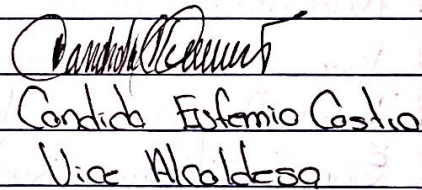 Candida Eufemio Castro
Vice Alcaldesa